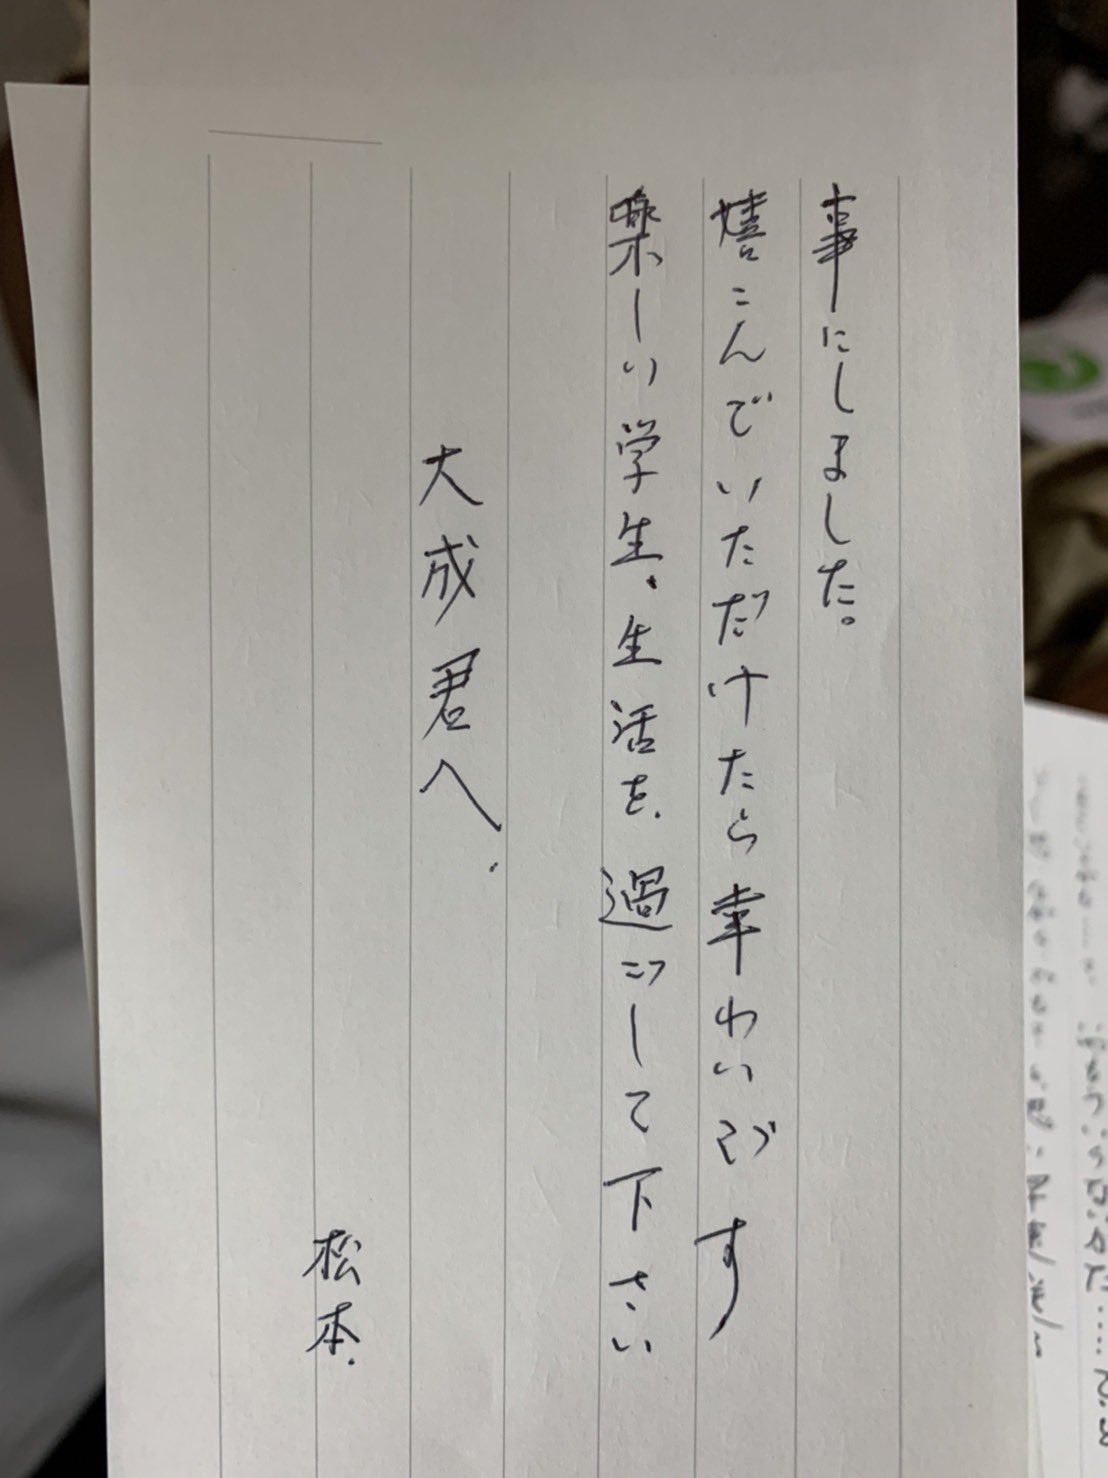 事にしました。
嬉こんでいただけたら幸わいです
楽しい学生、生活を、過ごして下さい
大成君へ.
松本.